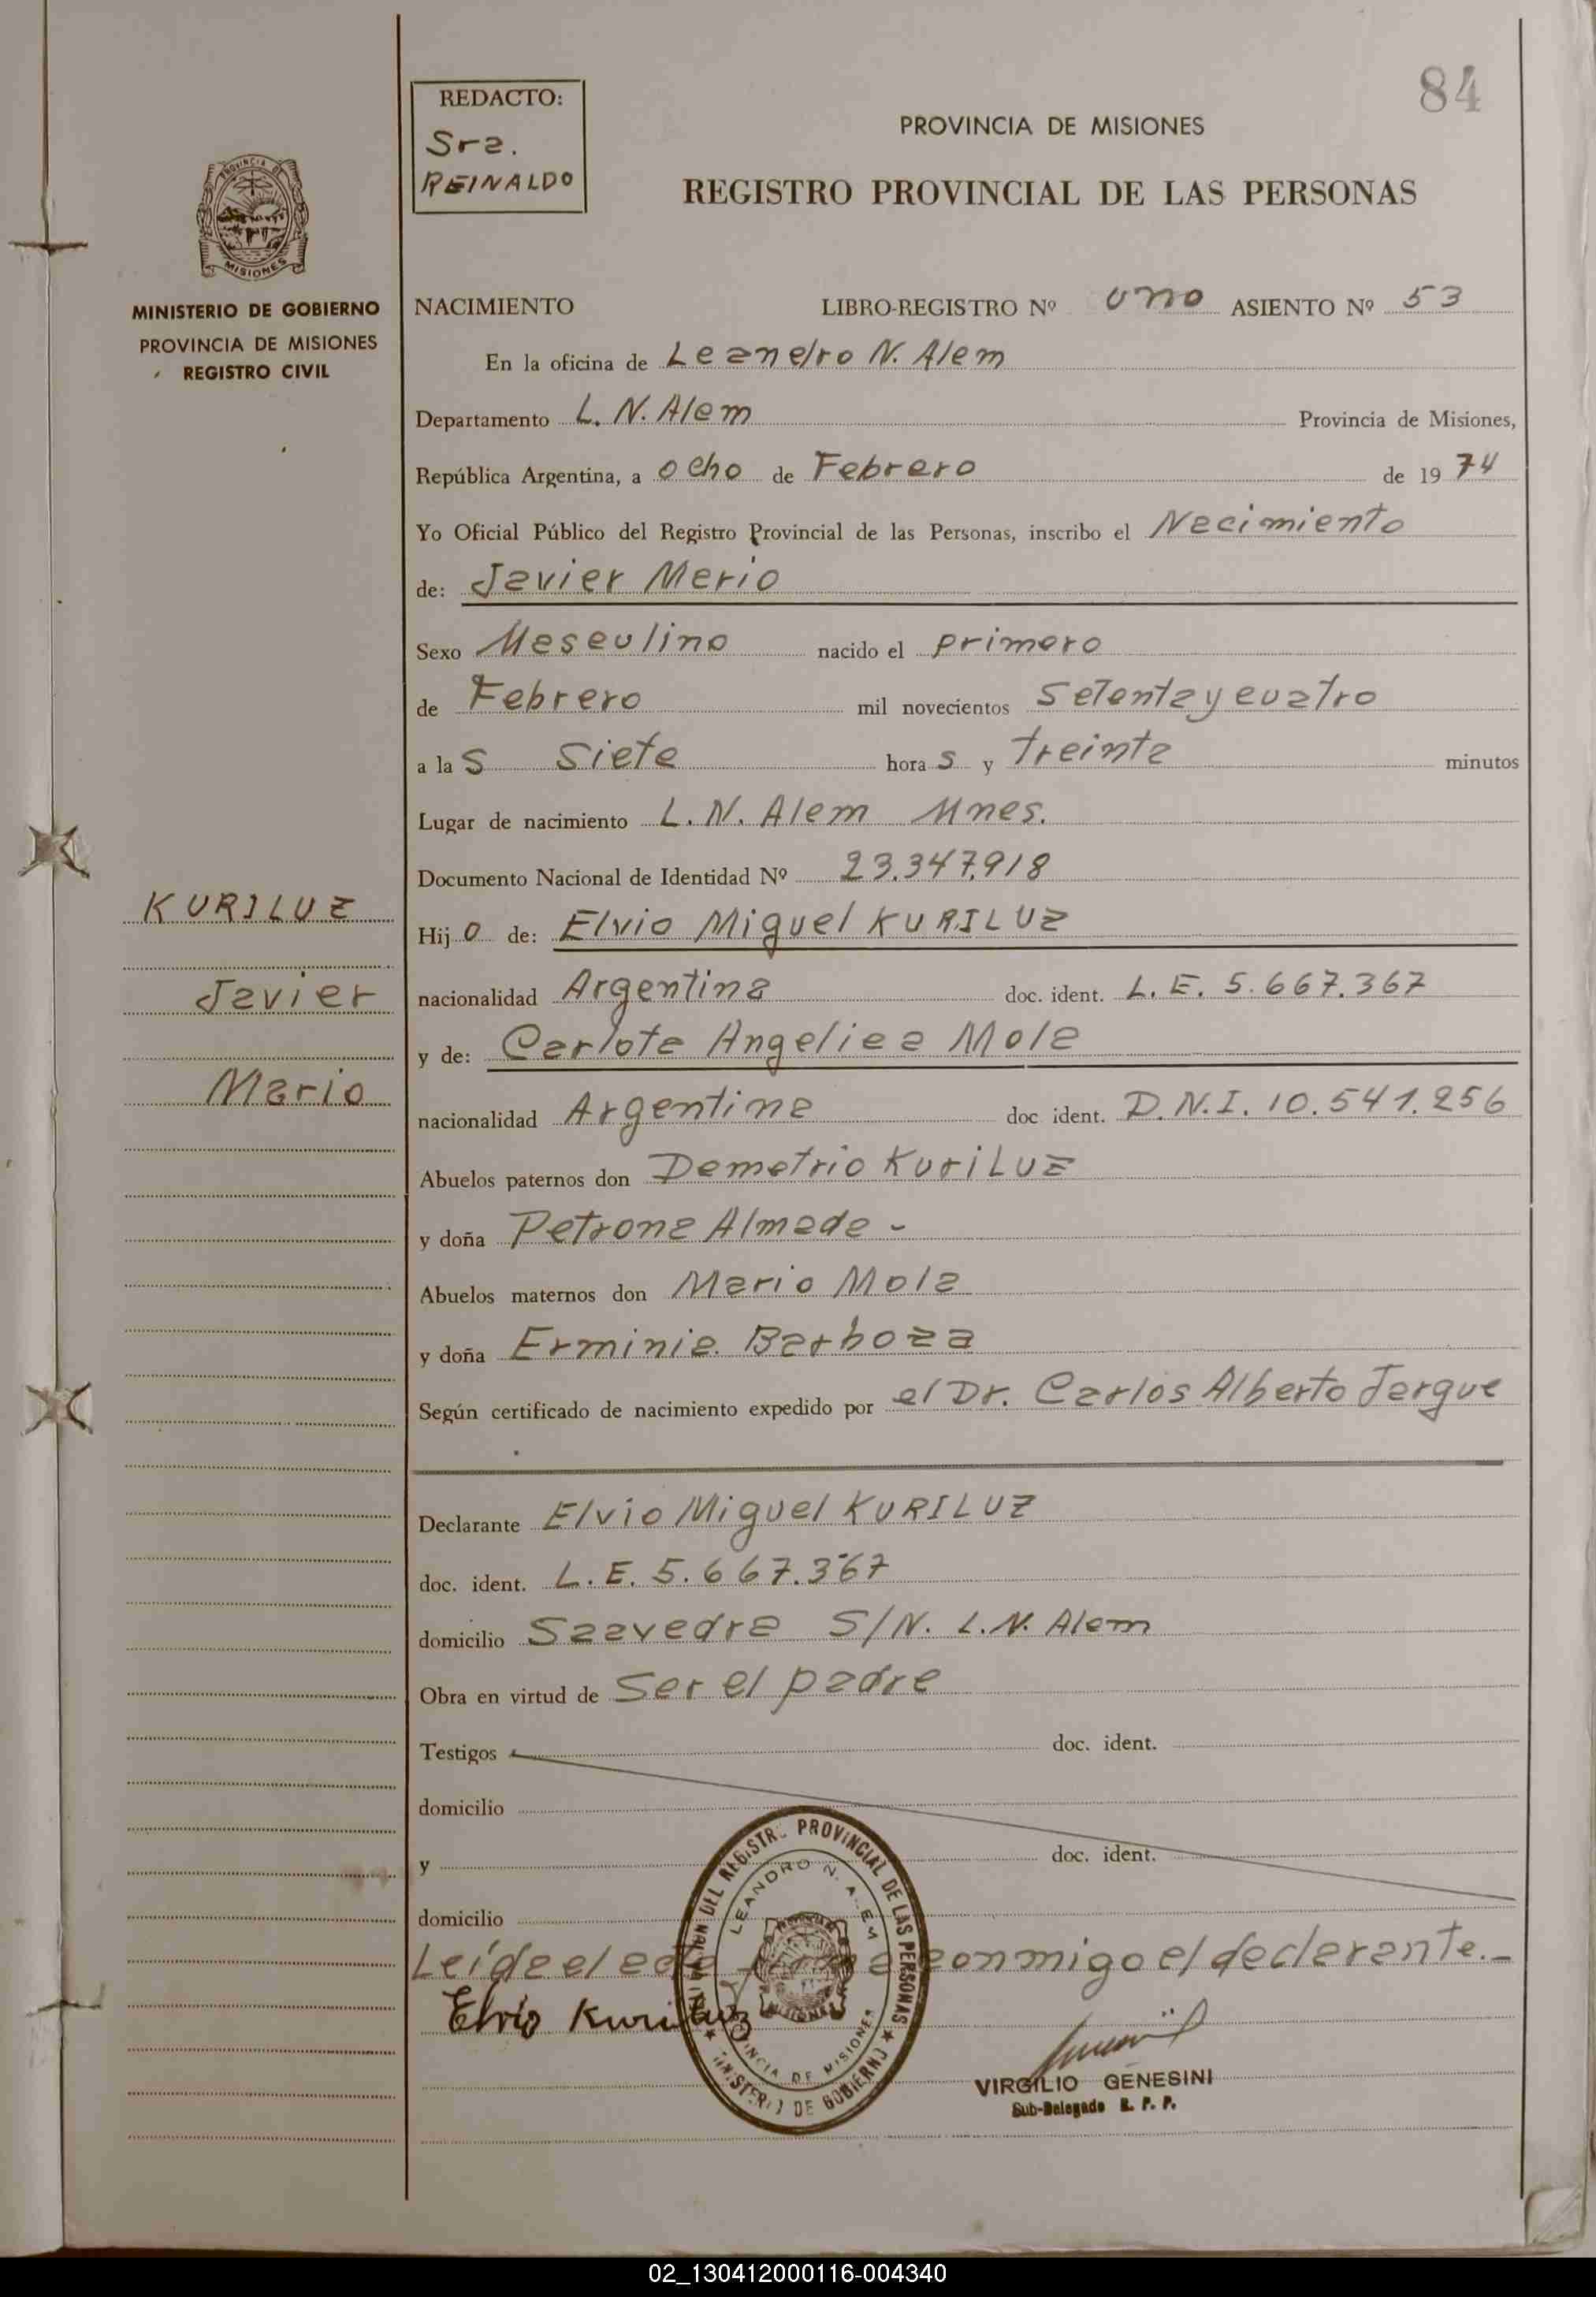 84
REDACTO:
Sra.
REINALDO
PROVINCIA DE MISIONES
REGISTRO PROVINCIAL DE LAS PERSONAS
PROVINCIA DE
MISIONES
MINISTERIO DE GOBIERNO
PROVINCIA DE MISIONES
REGISTRO CIVIL
NACIMIENTO LIBRO-REGISTRO Nº uno ASIENTO Nº 53
En la oficina de Leandro N. Alem
Departamento L. N. Alem Provincia de Misiones,
República Argentina, a ocho de Febrero de 1974
Yo Oficial Público del Registro Provincial de las Personas, inscribo el Nacimiento
de: Javier Mario
Sexo Masculino nacido el primero
de Febrero mil novecientos Setenta y cuatro
a la s siete hora s y treinta minutos
Lugar de nacimiento L. N. Alem Mnes.
Documento Nacional de Identidad Nº 23.347.918
KURILUZ
Javier
Mario
Hij o de: Elvio Miguel KURILUZ
nacionalidad Argentina doc. ident. L. E. 5.667.367
y de: Carlota Angelica Mola
nacionalidad Argentina doc ident. D.N.I. 10.541.256
Abuelos paternos don Demetrio KuriLuz
y doña Petrona Almada -
Abuelos maternos don Mario Mola
y doña Erminia Barboza
Según certificado de nacimiento expedido por el Dr. Carlos Alberto Jargue
Declarante Elvio Miguel KURILUZ
doc. ident. L. E. 5.667.367
domicilio Saavedra S/N. L.N. Alem
Obra en virtud de Ser el padre
Testigos doc. ident.
domicilio
y doc. ident.
domicilio
Leída el acta firma conmigo el declarante.-
Elvio Kuriluz
DEL REGISTRO PROVINCIAL DE LAS PERSONAS
MINISTERIO DE GOBIERNO
LEANDRO N. ALEM
PROVINCIA DE MISIONES
VIRGILIO GENESINI
Sub-Delegado R. P. P.
02_130412000116-004340